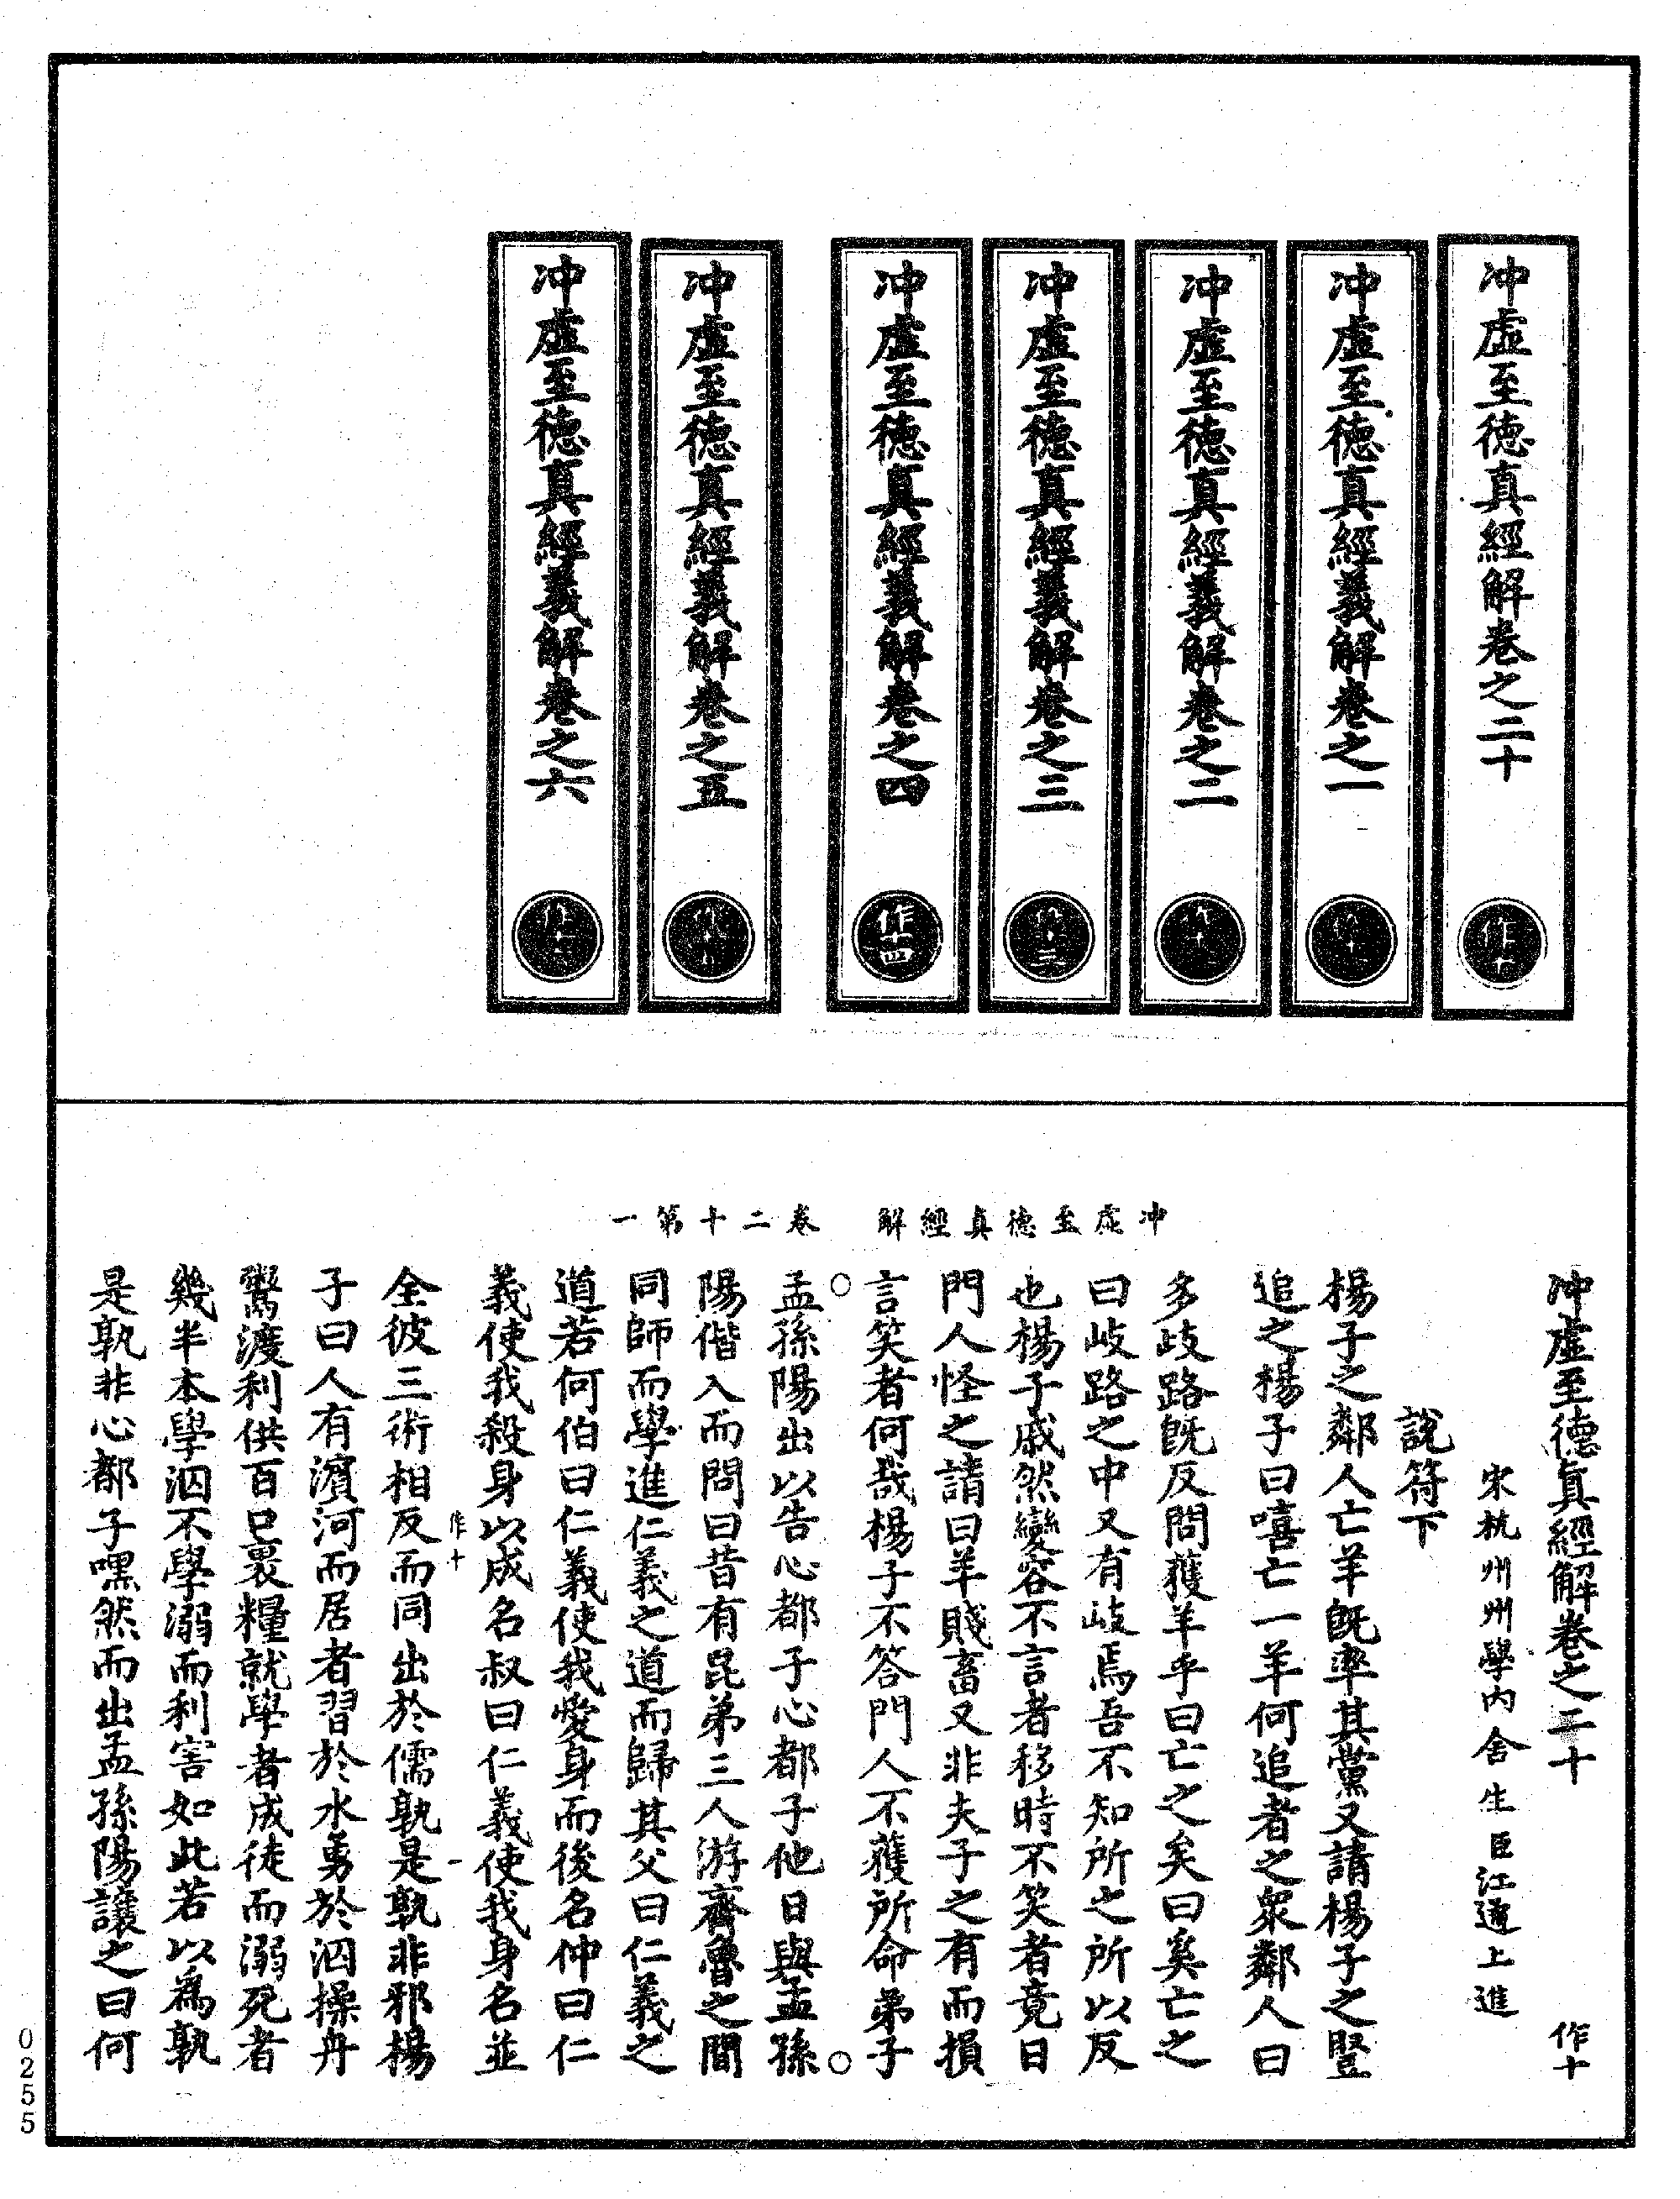 冲虛至德真經解卷之二十
作十
冲虛至德真經義解卷之一
冲虛至德真經義解卷之二
冲虛至德真經義解卷之三
冲虛至德真經義解卷之四
作十四
冲虛至德真經義解卷之五
冲虛至德真經義解卷之六
冲虛至德真經解　卷二十第一
冲虛至德真經解卷之二十　作十
宋杭州州學內舍生臣江遹上進
說符下
楊子之鄰人亡羊旣率其黨又請楊子之豎
追之楊子曰嘻亡一羊何追者之衆鄰人曰
多歧路旣反問獲羊乎曰亡之矣曰奚亡之
曰歧路之中又有歧焉吾不知所之所以反
也楊子戚然變容不言者移時不笑者竟日
門人怪之請曰羊賤畜又非夫子之有而損
言笑者何哉楊子不答門人不獲所命弟子
孟孫陽出以告心都子心都子他日與孟孫
陽偕入而問曰昔有昆弟三人游齊魯之間
同師而學進仁義之道而歸其父曰仁義之
道若何伯曰仁義使我愛身而後名仲曰仁
義使我殺身以成名叔曰仁義使我身名並
作十　一
全彼三術相反而同出於儒孰是孰非邪楊
子曰人有濱河而居者習於水勇於泅操舟
鬻渡利供百口裹糧就學者成徒而溺死者
幾半本學泅不學溺而利害如此若以爲孰
是孰非心都子嘿然而出孟孫陽讓之曰何
0255